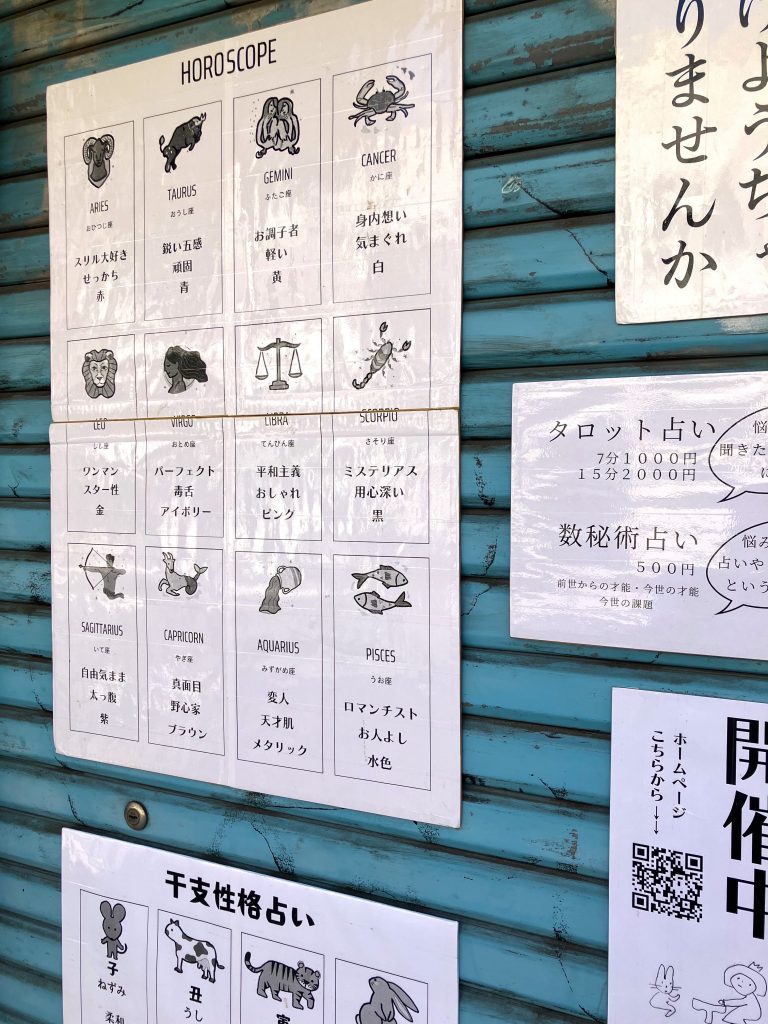 HOROSCOPE
ARIES
おひつじ座
スリル大好き
せっかち
赤
TAURUS
おうし座
鋭い五感
頑固
青
GEMINI
ふたご座
お調子者
軽い
黄
CANCER
かに座
身内想い
気まぐれ
白
LEO
しし座
ワンマン
スター性
金
VIRGO
おとめ座
パーフェクト
毒舌
アイボリー
LIBRA
てんびん座
平和主義
おしゃれ
ピンク
SCORPIO
さそり座
ミステリアス
用心深い
黒
SAGITTARIUS
いて座
自由気まま
太っ腹
紫
CAPRICORN
やぎ座
真面目
野心家
ブラウン
AQUARIUS
みずがめ座
変人
天才肌
メタリック
PISCES
うお座
ロマンチスト
お人よし
水色
干支性格占い
子
ねずみ
柔和
丑
うし
寅
けようちゃ
りませんか
タロット占い
7分1000円
15分2000円
悩
聞きた
数秘術占い
500円
前世からの才能・今世の才能
今世の課題
悩み
占いや
という
開催中
ホームページ
こちらから→→